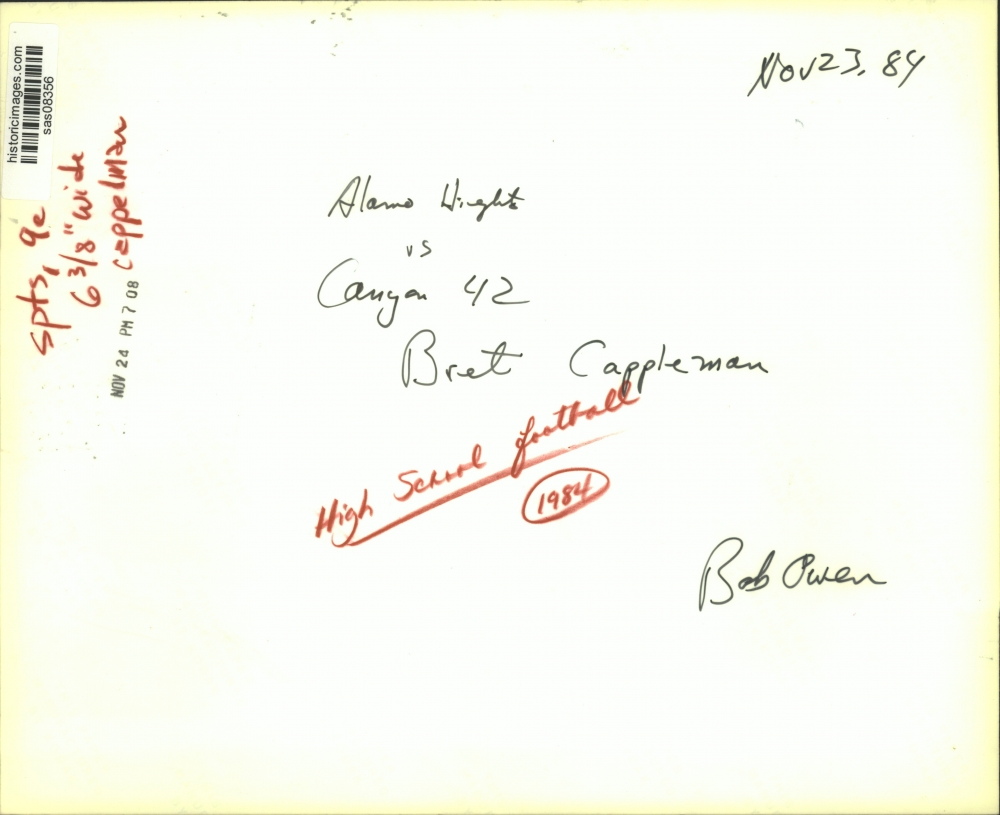 historicimages.com
sas08356
spts, 9e
6 3/8" wide
Cappelman
NOV 24 PM 7 08
Nov 23, 84
Alamo Hieghts
vs
Canyon 42
Bret Cappleman
High School football
1984
Bob Owen